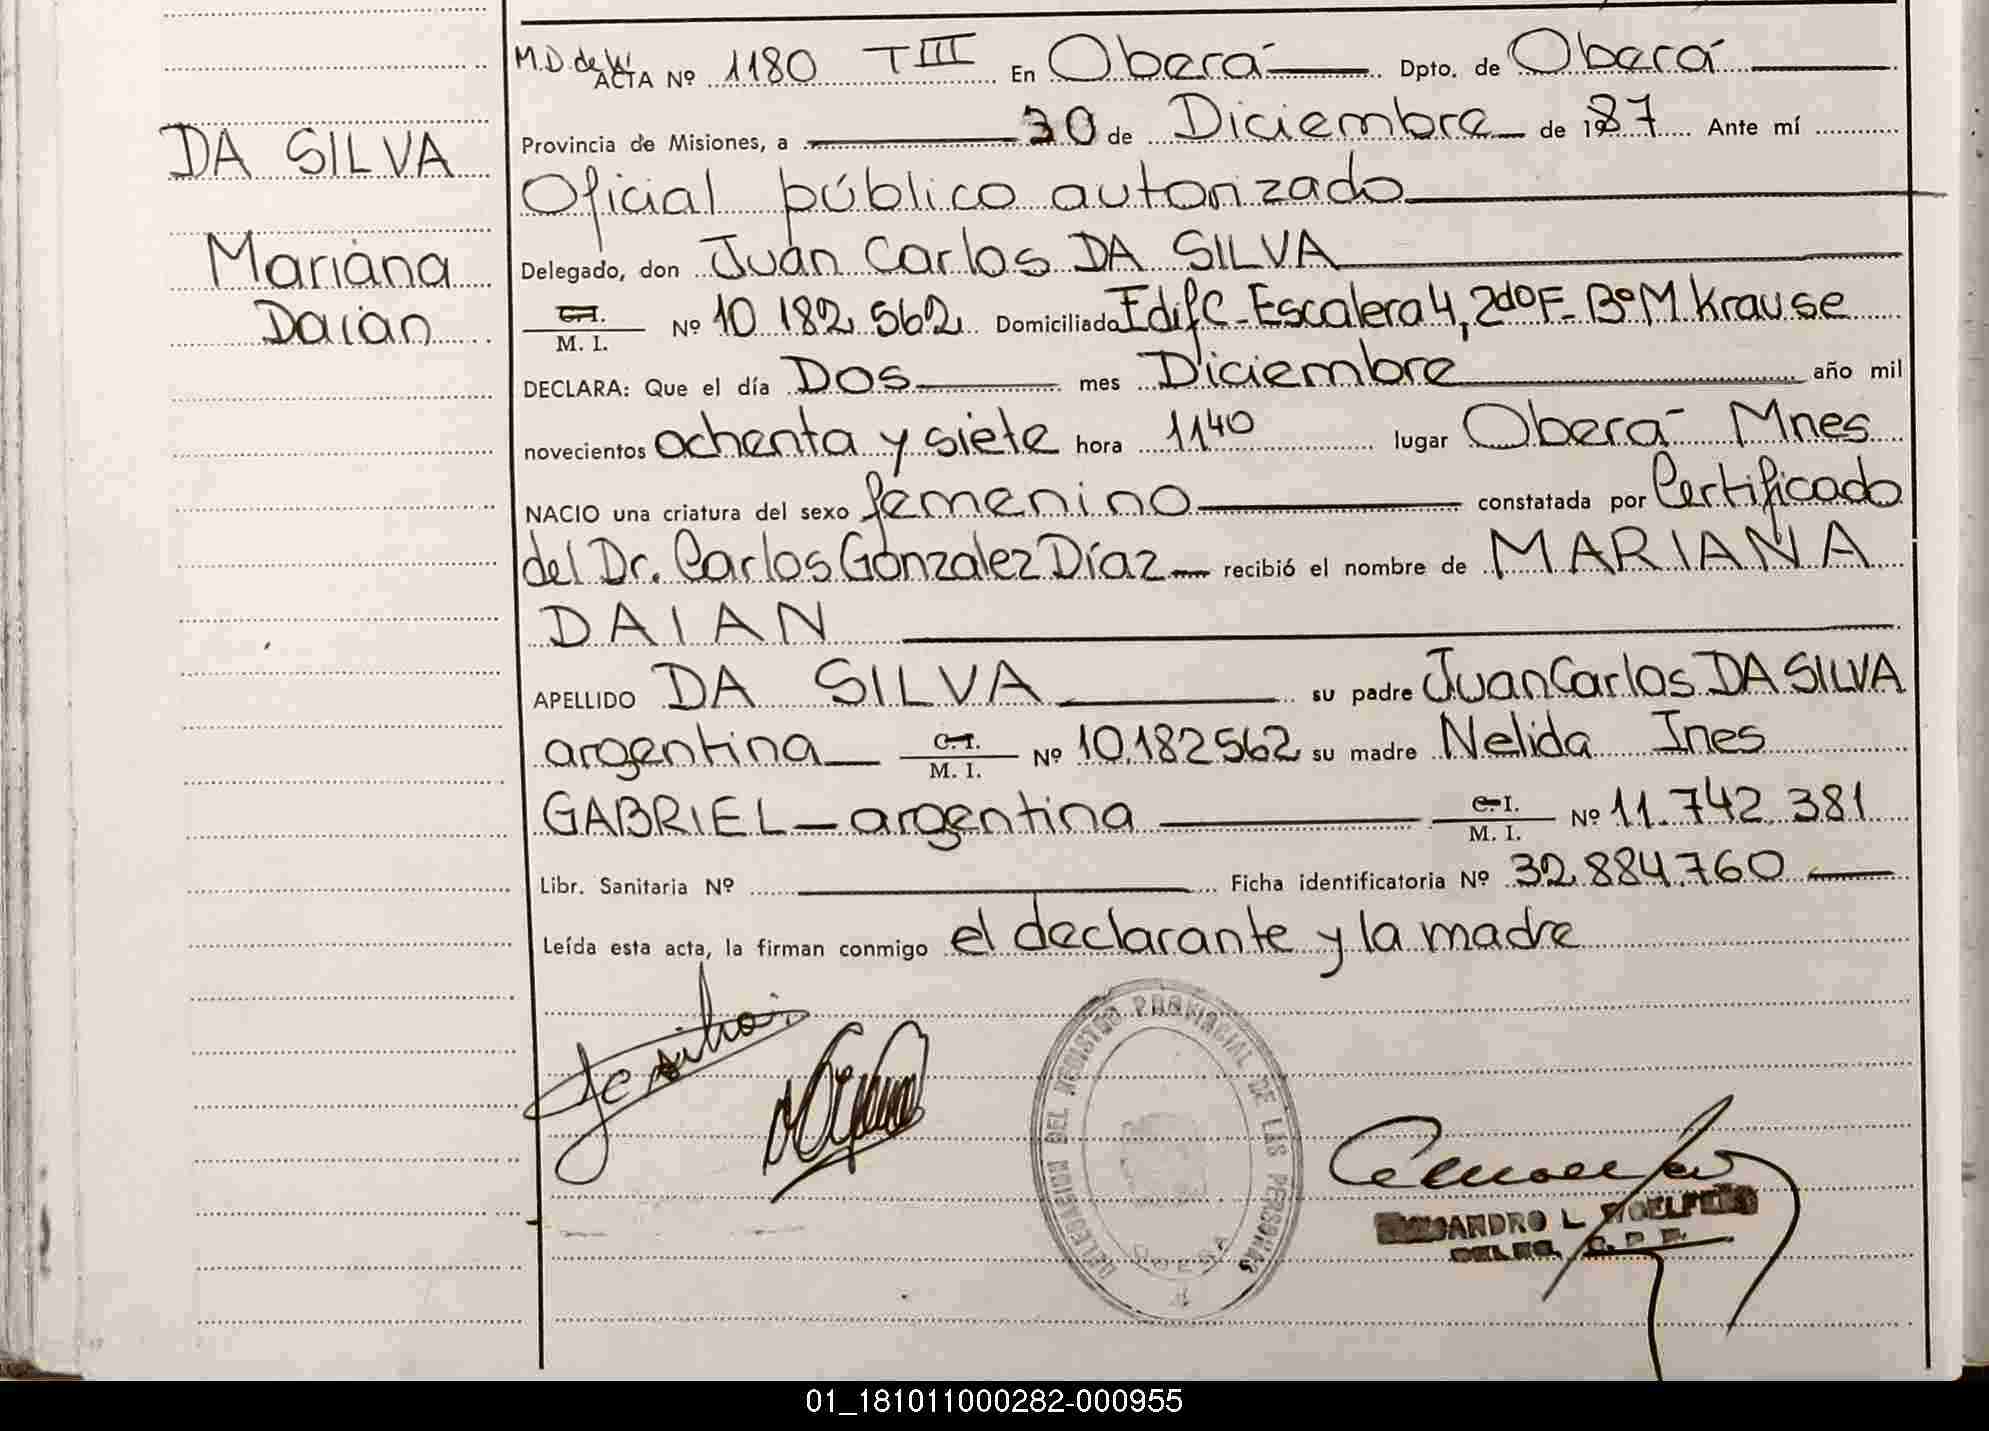 M.D. de
ACTA Nº 1180 TIII En Oberá Dpto. de Oberá
Provincia de Misiones, a 30 de Diciembre de 1987 Ante mí
DA SILVA
Oficial público autorizado
Mariana
Delegado, don Juan Carlos DA SILVA
Daian
C.I.
M. I. Nº 10 182 562 Domiciliado Edif C - Escalera 4, 2do F - Bº M. Krause
DECLARA: Que el día Dos mes Diciembre año mil
novecientos ochenta y siete hora 1140 lugar Oberá Mnes
NACIO una criatura del sexo femenino constatada por Certificado
del Dr. Carlos Gonzalez Díaz recibió el nombre de MARIANA
DAIAN
APELLIDO DA SILVA su padre Juan Carlos DA SILVA
argentina C.I. M. I. Nº 10.182562 su madre Nelida Ines
GABRIEL - argentina C.I. M. I. Nº 11.742.381
Libr. Sanitaria Nº Ficha identificatoria Nº 32.884.760
Leída esta acta, la firman conmigo el declarante y la madre
DELEGACION DEL REGISTRO PROVINCIAL DE LAS PERSONAS
OBERA
01_181011000282-000955